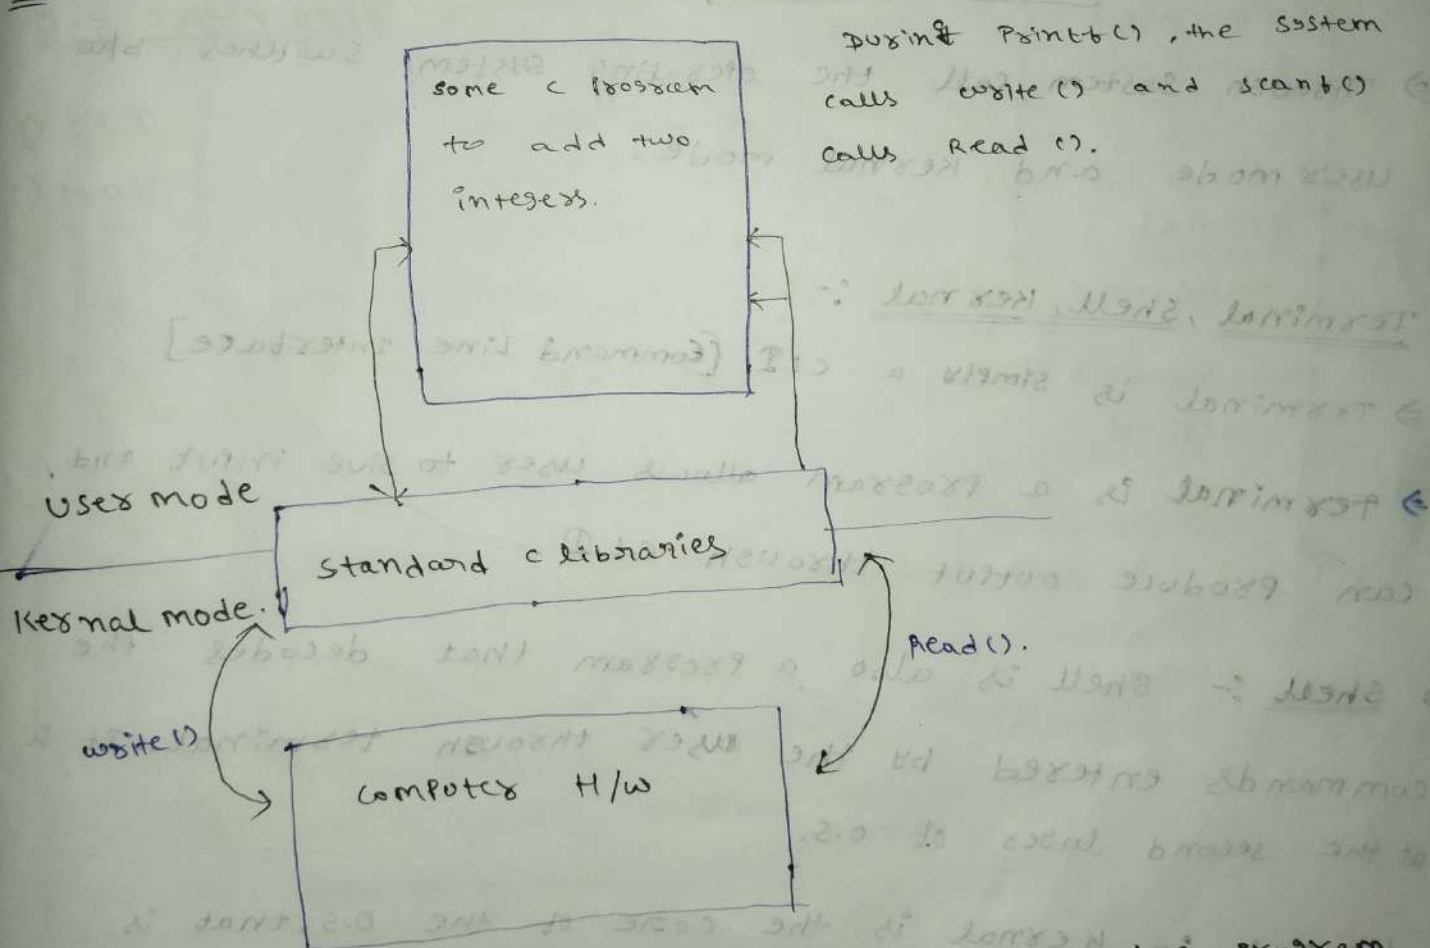 During Printf(), the System
calls write() and scanf()
calls Read().
some c program
to add two
integers.
User mode
standard c libraries
Kernal mode.
Read().
write()
computer H/w
program